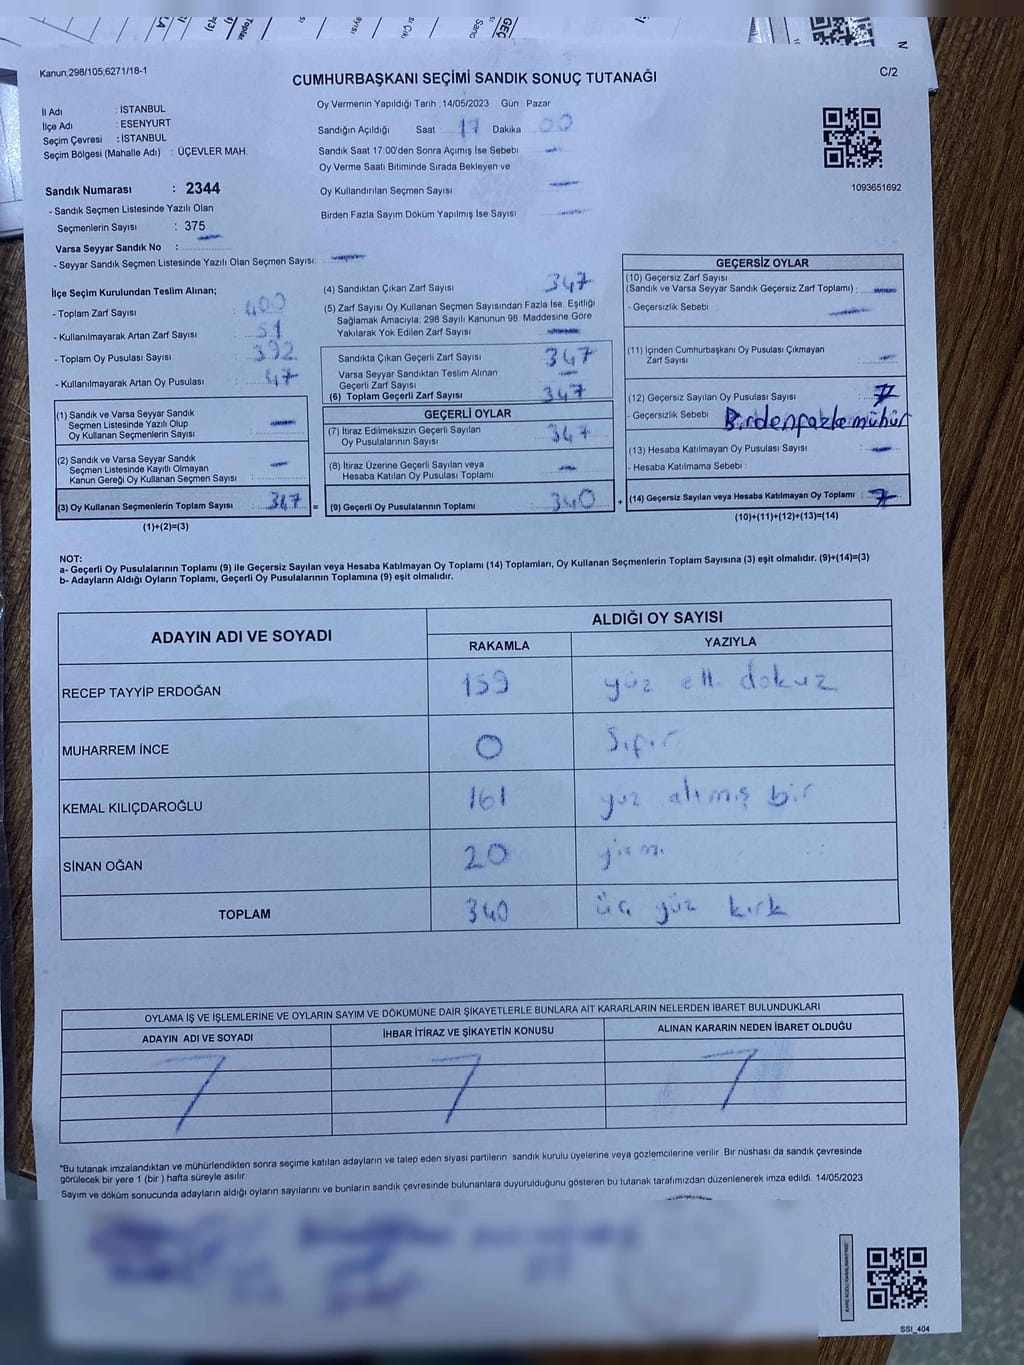 Kanun;298/105;6271/18-1
CUMHURBAŞKANI SEÇİMİ SANDIK SONUÇ TUTANAĞI
C/2
İl Adı : İSTANBUL
İlçe Adı : ESENYURT
Seçim Çevresi : İSTANBUL
Seçim Bölgesi (Mahalle Adı) : ÜÇEVLER MAH.
Oy Vermenin Yapıldığı Tarih : 14/05/2023 Gün : Pazar
Sandığın Açıldığı Saat 17 Dakika 00
Sandık Saat 17:00'den Sonra Açımış İse Sebebi
Oy Verme Saati Bitiminde Sırada Bekleyen ve
Oy Kullandırılan Seçmen Sayısı
Birden Fazla Sayım Döküm Yapılmış İse Sayısı
1093651692
Sandık Numarası : 2344
- Sandık Seçmen Listesinde Yazılı Olan
Seçmenlerin Sayısı : 375
Varsa Seyyar Sandık No :
- Seyyar Sandık Seçmen Listesinde Yazılı Olan Seçmen Sayısı:
İlçe Seçim Kurulundan Teslim Alınan;
- Toplam Zarf Sayısı : 400
- Kullanılmayarak Artan Zarf Sayısı : 51
- Toplam Oy Pusulası Sayısı : 392
- Kullanılmayarak Artan Oy Pusulası : 47
(1) Sandık ve Varsa Seyyar Sandık
Seçmen Listesinde Yazılı Olup
Oy Kullanan Seçmenlerin Sayısı
(2) Sandık ve Varsa Seyyar Sandık
Seçmen Listesinde Kayıtlı Olmayan
Kanun Gereği Oy Kullanan Seçmen Sayısı :
(3) Oy Kullanan Seçmenlerin Toplam Sayısı : 347
(1)+(2)=(3)
(4) Sandıktan Çıkan Zarf Sayısı 347
(5) Zarf Sayısı Oy Kullanan Seçmen Sayısından Fazla İse, Eşitliği
Sağlamak Amacıyla; 298 Sayılı Kanunun 98. Maddesine Göre
Yakılarak Yok Edilen Zarf Sayısı
Sandıkta Çıkan Geçerli Zarf Sayısı 347
Varsa Seyyar Sandıktan Teslim Alınan
Geçerli Zarf Sayısı
(6) Toplam Geçerli Zarf Sayısı 347
GEÇERLİ OYLAR
(7) İtiraz Edilmeksizin Geçerli Sayılan
Oy Pusulalarının Sayısı 347
(8) İtiraz Üzerine Geçerli Sayılan veya
Hesaba Katılan Oy Pusulası Toplamı
= (9) Geçerli Oy Pusulalarının Toplamı 340
GEÇERSİZ OYLAR
(10) Geçersiz Zarf Sayısı
(Sandık ve Varsa Seyyar Sandık Geçersiz Zarf Toplamı) :
- Geçersizlik Sebebi :
(11) İçinden Cumhurbaşkanı Oy Pusulası Çıkmayan
Zarf Sayısı
(12) Geçersiz Sayılan Oy Pusulası Sayısı : 7
- Geçersizlik Sebebi : Birdenfazlemühür
(13) Hesaba Katılmayan Oy Pusulası Sayısı :
- Hesaba Katılmama Sebebi :
+ (14) Geçersiz Sayılan veya Hesaba Katılmayan Oy Toplamı : 7
(10)+(11)+(12)+(13)=(14)
NOT:
a- Geçerli Oy Pusulalarının Toplamı (9) ile Geçersiz Sayılan veya Hesaba Katılmayan Oy Toplamı (14) Toplamları, Oy Kullanan Seçmenlerin Toplam Sayısına (3) eşit olmalıdır. (9)+(14)=(3)
b- Adayların Aldığı Oyların Toplamı, Geçerli Oy Pusulalarının Toplamına (9) eşit olmalıdır.
ADAYIN ADI VE SOYADI
ALDIĞI OY SAYISI
RAKAMLA YAZIYLA
RECEP TAYYİP ERDOĞAN 159 yüz elli dokuz
MUHARREM İNCE 0 Sıfır
KEMAL KILIÇDAROĞLU 161 yüz altmış bir
SİNAN OĞAN 20 yirmi
TOPLAM 340 üç yüz kırk
OYLAMA İŞ VE İŞLEMLERİNE VE OYLARIN SAYIM VE DÖKÜMÜNE DAİR ŞİKAYETLERLE BUNLARA AİT KARARLARIN NELERDEN İBARET BULUNDUKLARI
ADAYIN ADI VE SOYADI İHBAR İTİRAZ VE ŞİKAYETİN KONUSU ALINAN KARARIN NEDEN İBARET OLDUĞU
*Bu tutanak imzalandıktan ve mühürlendikten sonra seçime katılan adayların ve talep eden siyasi partilerin sandık kurulu üyelerine veya gözlemcilerine verilir. Bir nüshası da sandık çevresinde
görülecek bir yere 1 (bir ) hafta süreyle asılır.
Sayım ve döküm sonucunda adayların aldığı oyların sayılarını ve bunların sandık çevresinde bulunanlara duyurulduğunu gösteren bu tutanak tarafımızdan düzenlenerek imza edildi. 14/05/2023
SSI_404